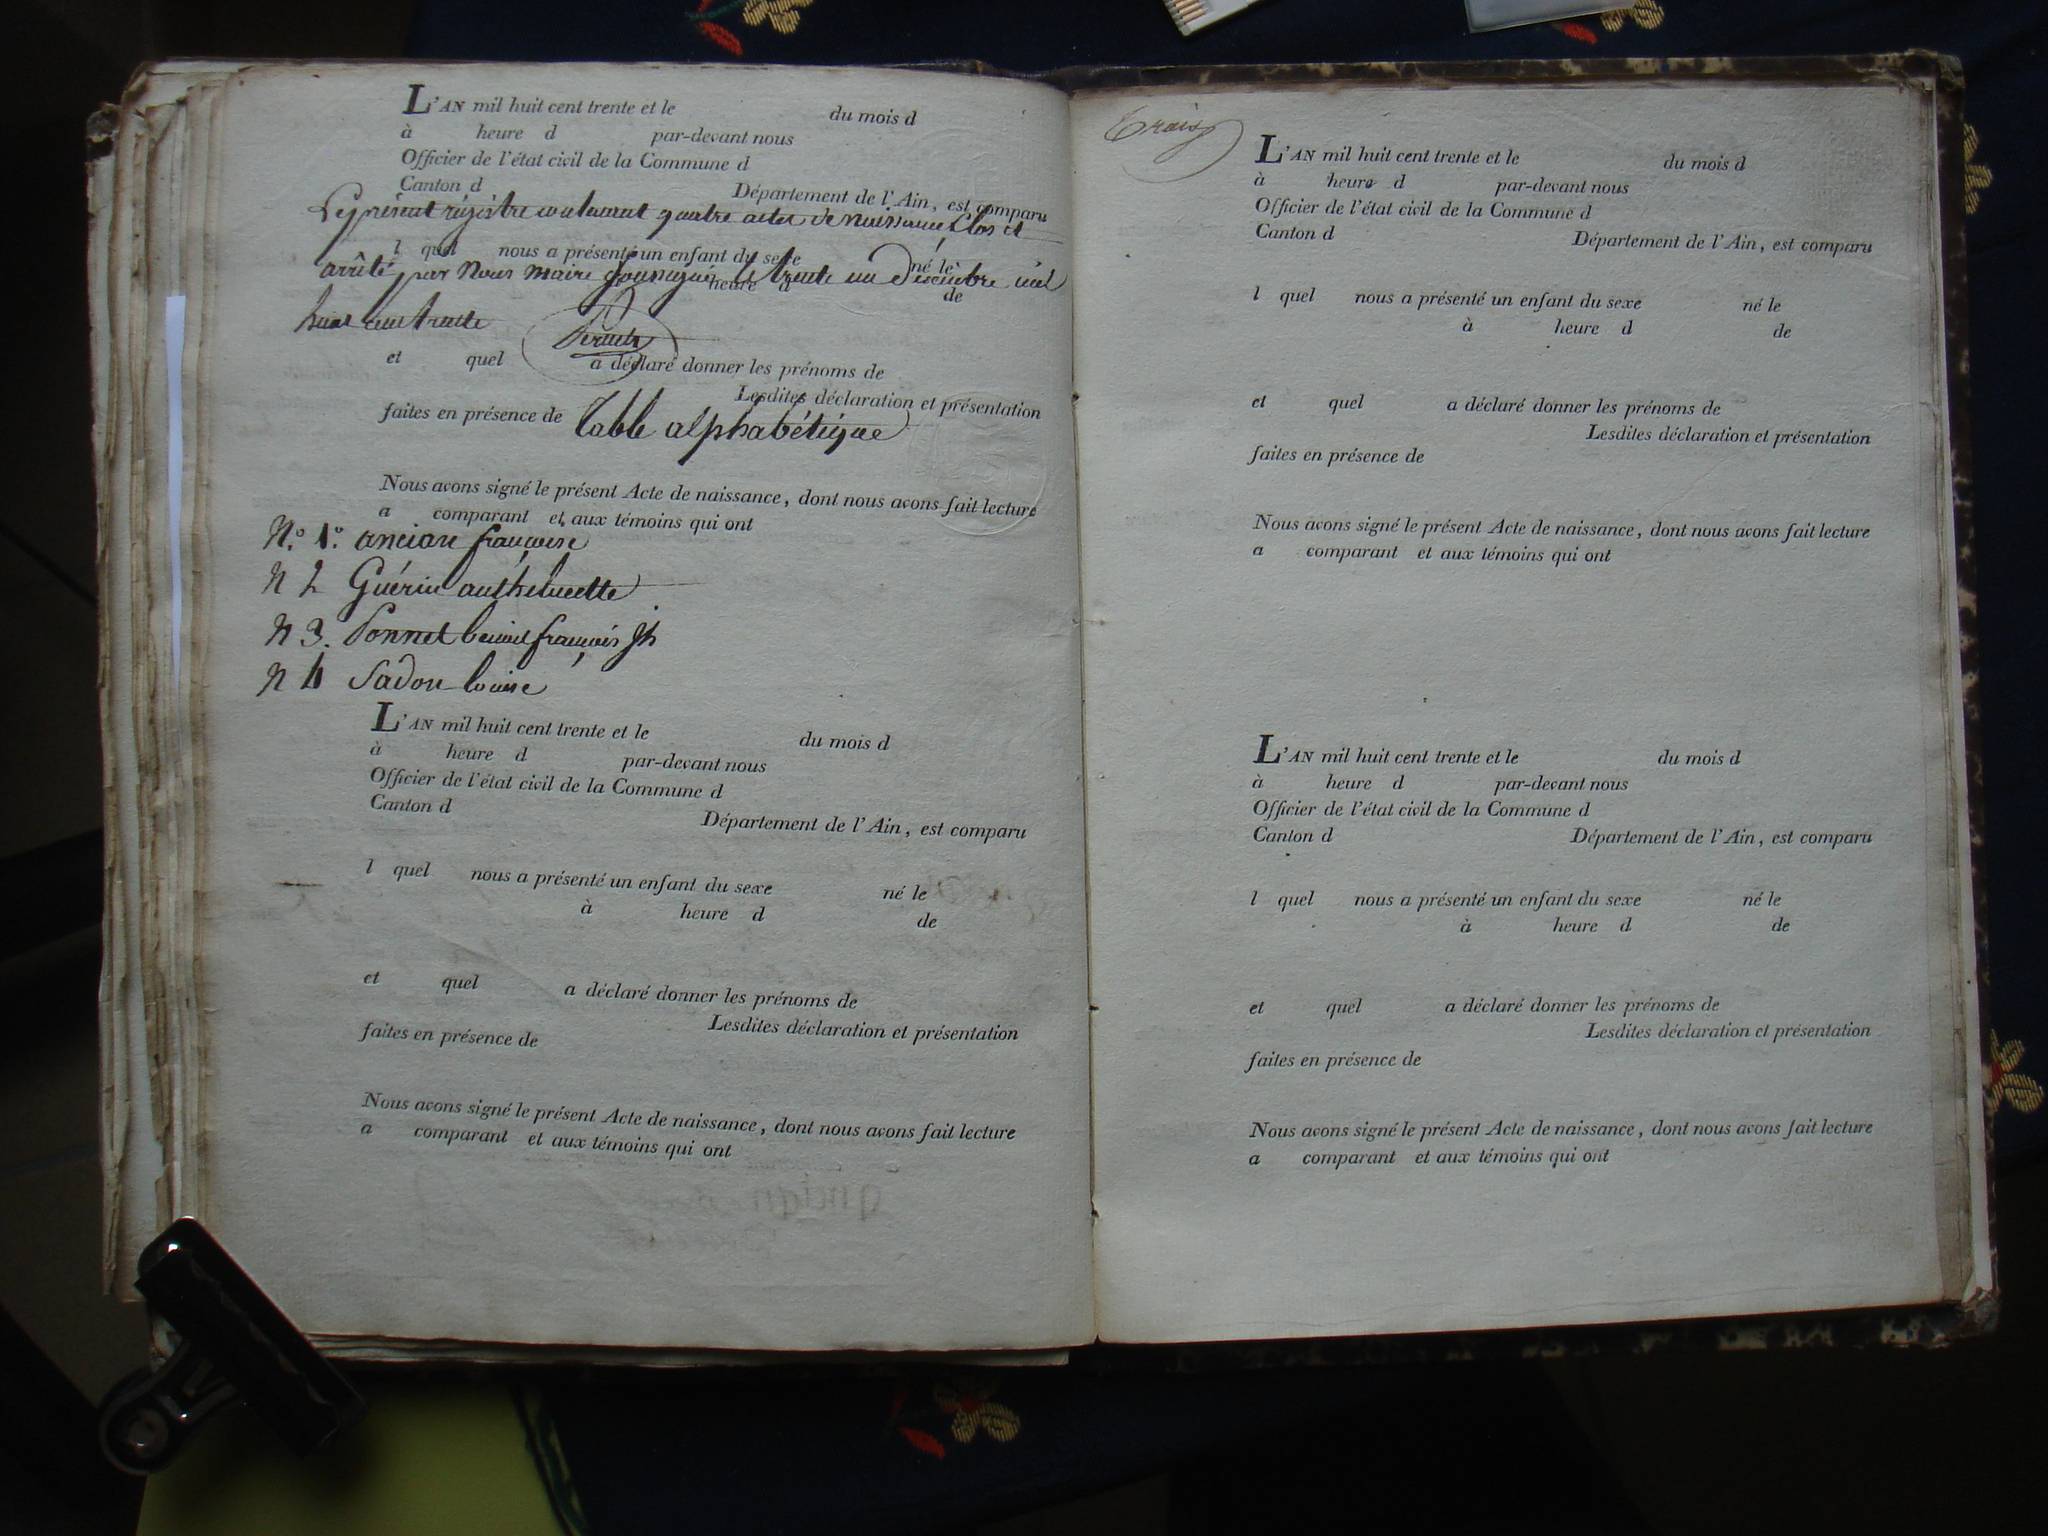 L'AN mil huit cent trente et le du mois d
à heure d par-devant nous
Officier de l'état civil de la Commune d
Canton d Département de l'Ain, est comparu
Le présent régistre contenant quatre actes de Naissance, Clos et
l quel nous a présenté un enfant du sexe né le
arrêté par Nous maire soussigné, le trente un Décembre mil
heure d de
huit cent trente
et quel a déclaré donner les prénoms de
Lesdites déclaration et présentation
faites en présence de
Table alphabétique
Nous avons signé le présent Acte de naissance, dont nous avons fait lecture
a comparant et aux témoins qui ont
N.º 1.º ancian françoise
N 2 Guérin anthelmette
N 3. Ponnet benoit françois jh
N 4 Sadon louise
L'AN mil huit cent trente et le du mois d
à heure d par-devant nous
Officier de l'état civil de la Commune d
Canton d Département de l'Ain, est comparu
l quel nous a présenté un enfant du sexe né le
à heure d de
et quel a déclaré donner les prénoms de
Lesdites déclaration et présentation
faites en présence de
Nous avons signé le présent Acte de naissance, dont nous avons fait lecture
a comparant et aux témoins qui ont
Trois
L'AN mil huit cent trente et le du mois d
à heure d par-devant nous
Officier de l'état civil de la Commune d
Canton d Département de l'Ain, est comparu
l quel nous a présenté un enfant du sexe né le
à heure d de
et quel a déclaré donner les prénoms de
Lesdites déclaration et présentation
faites en présence de
Nous avons signé le présent Acte de naissance, dont nous avons fait lecture
a comparant et aux témoins qui ont
L'AN mil huit cent trente et le du mois d
à heure d par-devant nous
Officier de l'état civil de la Commune d
Canton d Département de l'Ain, est comparu
l quel nous a présenté un enfant du sexe né le
à heure d de
et quel a déclaré donner les prénoms de
Lesdites déclaration et présentation
faites en présence de
Nous avons signé le présent Acte de naissance, dont nous avons fait lecture
a comparant et aux témoins qui ont